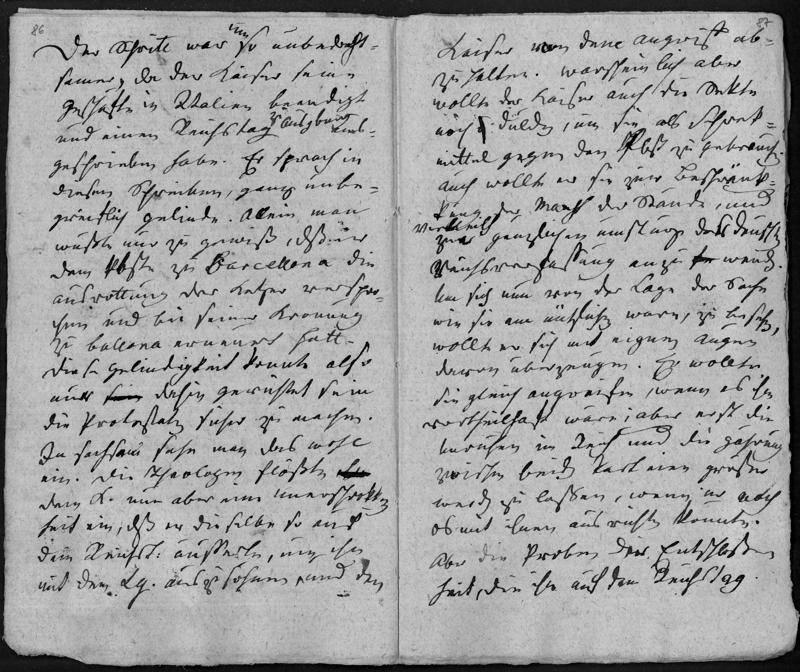 86
Der Schritt war um so unbedacht=
samer, da der Kaiser seine
Geschäfte in Italien beendigt
und einen Reichstag zu Augsburg aus=
geschrieben habe. Er sprach in
diesem Schreiben, ganz unbe=
greiflich gelinde. Allein man
wußte nur zu gewiß, daß er
dem Pbste zu Barcellona die
ausrottung der Ketzer verspro=
chen und bei seiner Kronung
zu bollona erneuert hatt-
Diese gelindigkeit konnte also
nur dahin gerichtet sein
die Protestaten sicher zu machen.
In sachsen sahe man das wohl
ein. Die Theologen flößten
dem K. nun aber eine unerschrokken
heit ein, dß er dieselbe so auf
dem Reichst: äusserte, um ihn
mit dem Lg. auszusöhnen, und den
87
Kaiser von dem angriff ab=
zuhalten. warscheinlich aber
wollte der Kaiser auch die Sekte
noch dulden, um sie als Schrek=
mittel gegen den Pbst zu gebrauch.
auch wollte er sie zur Beschränk=
kung der Macht der Stände, und
vielleicht
zur genzlichen umsturz der deutsch
Reichsverfassung anzu wend.
Um sich nun von der Lage der Sache
wie sie am nützlichst waren, zu
wollte er sich mit eignen Augen
davon überzeugen. Er wollte
sie gleich angreifen, wenn es ihm
vortheilhaft wäre; aber erst die
unruhen im Reich und die gährung
zwischen beid Parteien grosser
werd zu lassen, wenn er noch
es mit ihnen ausrichten konnte.
Aber die Proben der Entschlossen
heit, die sie auf dem Reichstag.